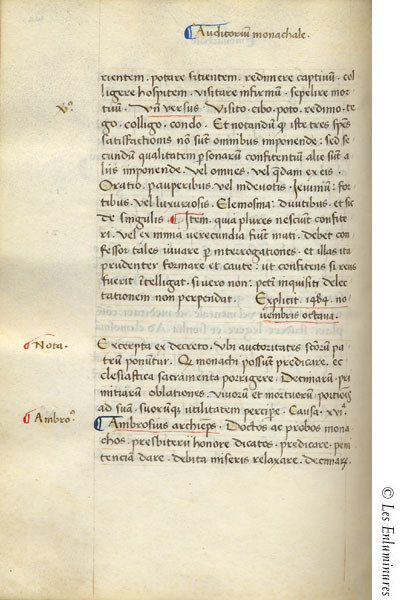 Auditoriũ monachale.
rientem. potare sitientem. redimere captiuũ. col
ligere hospitem. visitare infirmũ. sepelire mor
tuũ. Vñ versus. Visito. cibo. poto. redimo. te
go. colligo. condo. Et notandũ q̃ iste tres sp̃es
satisfactionis nõ sũt omnibus imponende: sed se
cundũ qualitatem ꝑsonarũ confitentiũ alie sũt a
liis imponende. Vel omnes. vel q̃dam ex eis.
Oratio. pauperibus. vel indeuotis. Ieiuniũ: for
tibus. vel luxuriosis. Elemosina: diuitibus. et sic
de singulis. Itẽ. quia plures nesciunt confite
ri. vel ex nimia verecundia fiunt muti. debet con
fessor tales iuuare ꝑ interrogationes. et illas ita
prudenter formare et caute. ut confitens si reus
fuerit ĩtelligat. si vero non: peccati inquisiti delec
tationem non perpendat. Explicit. 1484. no
uembris octaua.
Nota.
Excerpta ex decreto. Vbi auctoritates sctõrũ pa
trũ ponũtur. Q monachi possũt predicare. ec
clesiastica sacramenta porrigere. Decimarũ. pri
mitiarũ. oblationes. Viuorũ et mortuorũ. portiões
ad suã. suorũq̃ utilitatem percipe. Causa. xvi.
Ambro⁹.
Ambrosius archiep̃s. Doctos ac probos mona
chos. presbiterii honore dicatos. predicare. peni
tenciam dare. debita miseris relaxare. decimarũ
© Les Enluminures